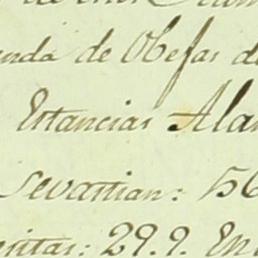 nda de Obejas de
Estancias Alar
Sevastian: 56
entas: 29.9. En